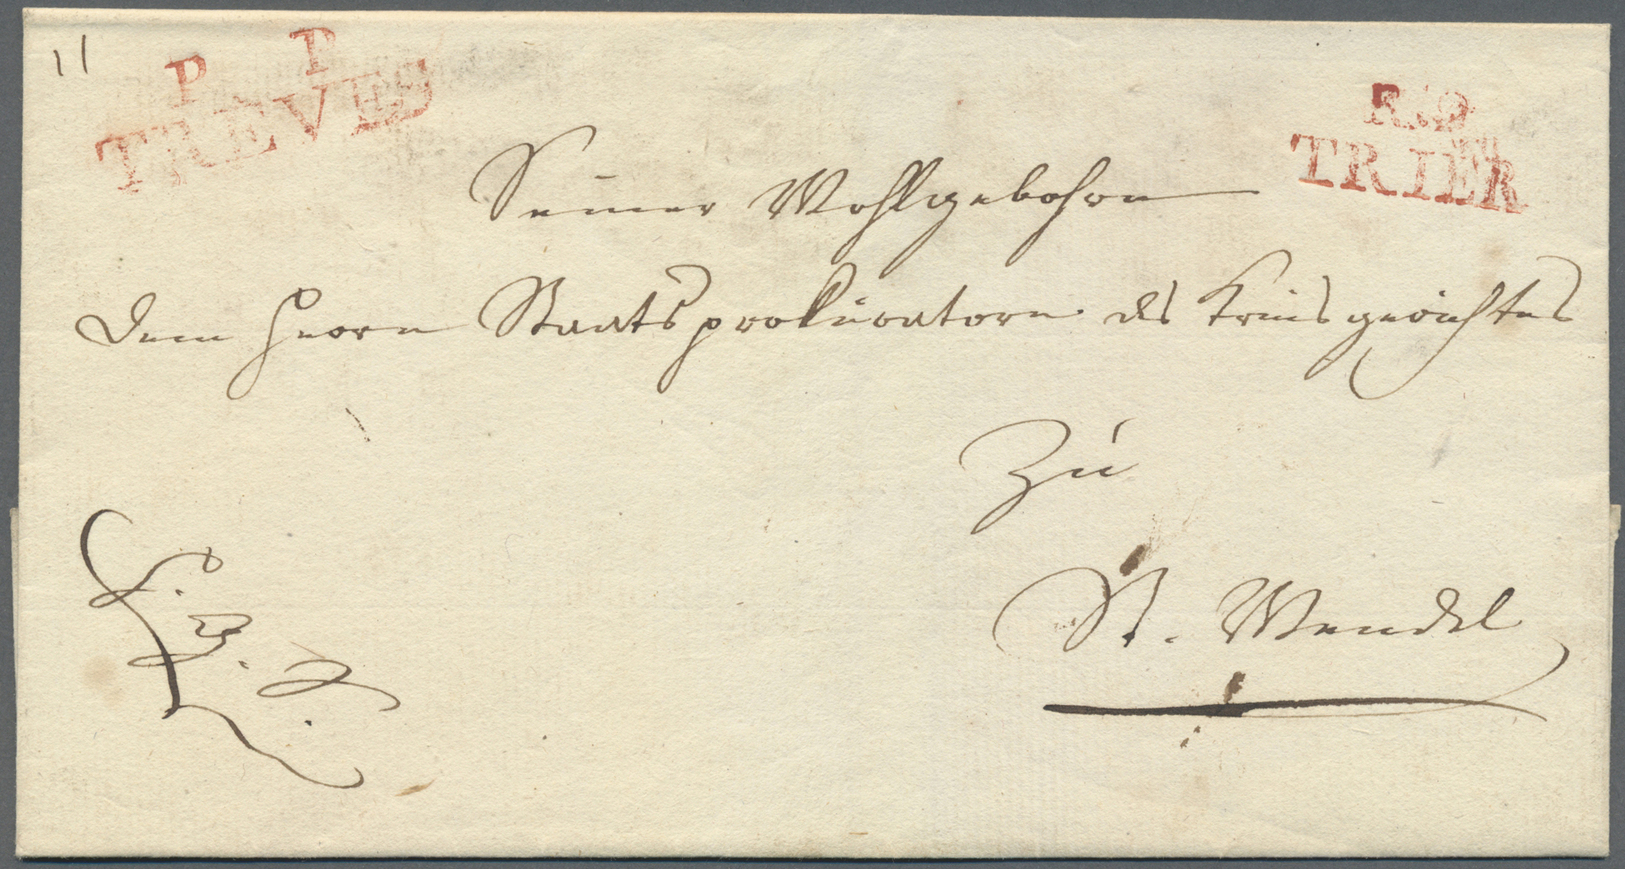 11
P P
TREVES
R.9
TRIER
Seiner Wohlgebohrn
dem Herrn Staatsprokuratorn des Kreisgerichtes
Zu
St. Wendel